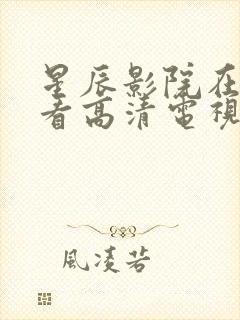 星辰影院在
看高清電視
風凌若